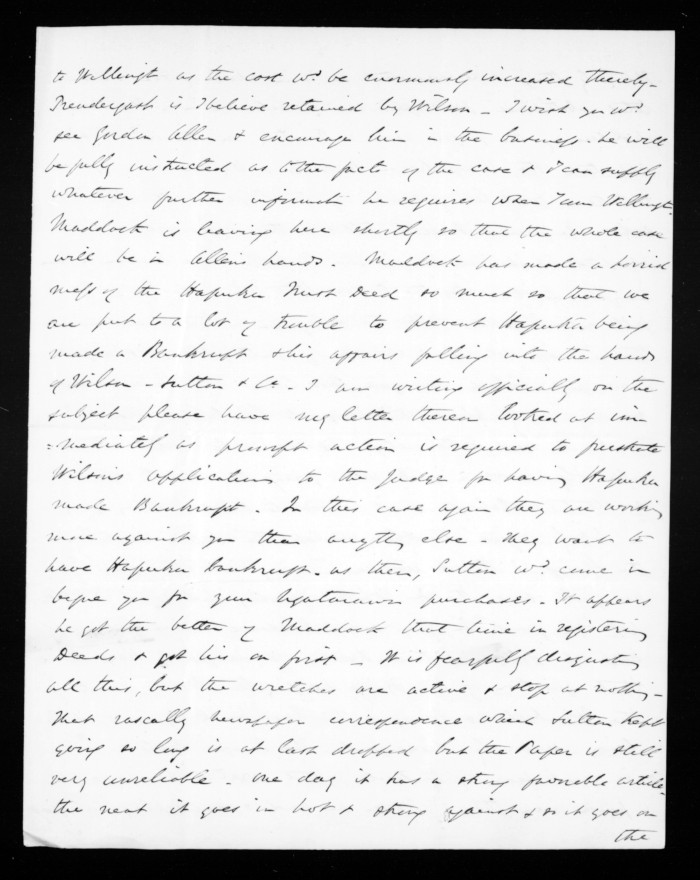 to Wellingt as the cost wd. be enormously increased thereby –
Prendergast is I believe retained by Wilson – I wish you wd.
see Gordon Allen & encourage him in the business. he will
be fully instructed as to the facts of the case & I can supply
whatever further informatn he requires when I am Wellingt.
Maddock is leaving here shortly so that the whole case
will be in Allens hands. Maddock has made a horrid
mess of the Hapuku Trust Deed so much so that we
are put to a lot of trouble to prevent Hapuku being
made a Bankrupt & his affairs falling into the hands
of Wilson – Sutton & Co. – I am writing officially on the
subject please have my letter thereon looked at im
=mediately as prompt action is required to frustrate
Wilsons application to the Judge for having Hapuku
made Bankrupt. In this case again they are working
more against you than anything else – they want to
have Hapuku bankrupt. as then, Sutton wd. come in
before you for your Ngatarawa purchases – It appears
he got the better of Maddock that time in registering
Deeds & got his on first – It is fearfully disgusting
all this, but the wretches are active & stop at nothing –
That rascally newspaper correspondence which Sutton kept
going so long is at last dropped but the Paper is still
very unreliable – one day it has a strong favorable article –
the next it goes in hot & strong against & so it goes on
the